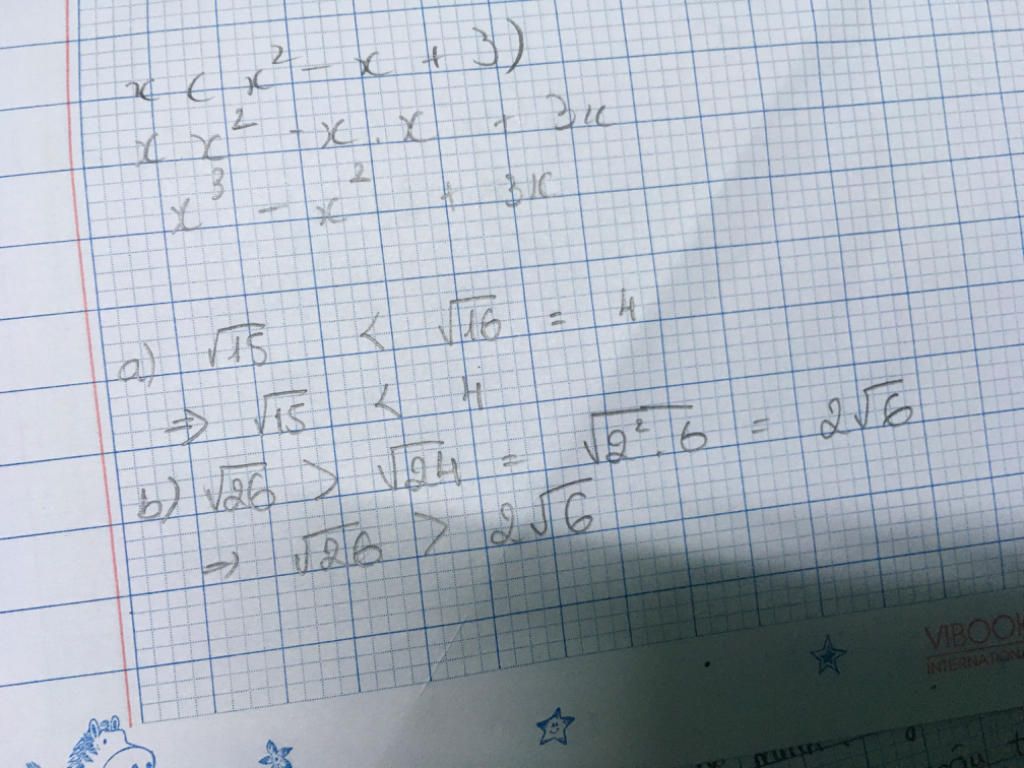 x ( x² - x + 3)
x x² - x . x - 3x
x³ - x² + 3x
a) √15 < √16 = 4
⇒ √15 < 4
b) √26 > √24 = √2² . 6 = 2√6
→ √26 > 2√6
VIBOOK
INTERNATIONA